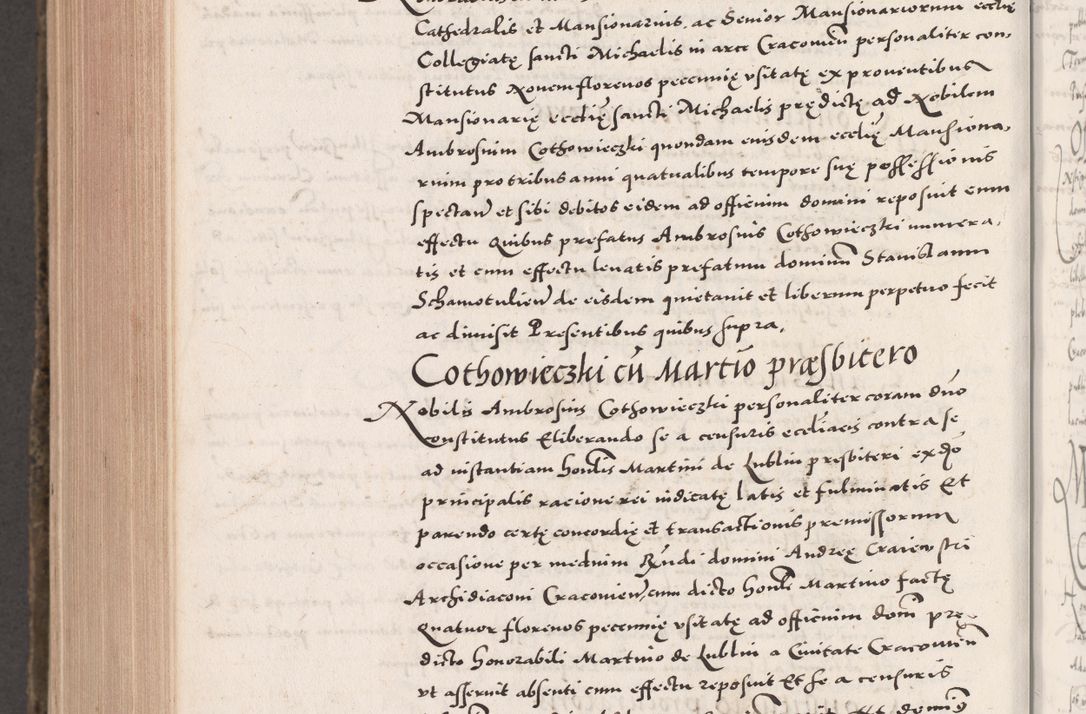 Cathedralis et Mansionarius, ac Senior Mansionariorum ecclię
Collegiatę sancti Michaelis in arce Cracovień personaliter con-
stitutus Novem florenos peccunię usitatę ex proventibus
Mansionarię ecclię sancti Michaelis prędictę ad Nobilem
Ambrosium Cothowieczki quondam eiusdem eccelię Mansiona-
rium pro tribus anni quatualibus tempore suę possessionis
spectań et sibi debitos eidem ad officium domini reposuit cum
effectu Quibus prefatus Ambrosius Cothowieczki numera-
tis et cum effectu levatis prefatum dominum Stanislaum
Schamotulień de eisdem quietavit et liberum perpetuo fecit
ac dimisit Presentibus quibus supra,
Cothowieczki cū Martīo præsbitero
Nobilis Ambrosius Cothowieczki personaliter coram dño
constitutus Eliberando se a censuris eccliacis contra se
ad instantiam honlis Martini de Lublin presbiteri ex dño
principalis racione rei iudicatę latis et fulminatis Et
parendo certę concordię et transactionis premissorum
occasione per medium Rñdi domini Andreę Craiewski
Archidiaconi Cracovień, cum dicto honli Martino factę
Quatuor florenos peccunię usitatę ad officium domī pre-
dicto honorabili Martino de Lublin a Civitate Cracovień
ut asseruit absenti cum effectu reposuit Et se a censuris